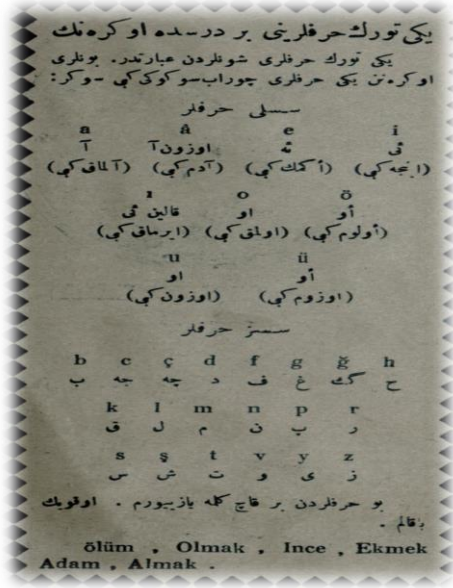 یکی تورك حرفلرینی بر درسده اوکره‌نك
یکی تورك حرفلری شونلردن عبارتدر. بونلری
اوکره‌نن یکی حرفلری چوراب سوکوکی کبی سوکر:
سسلی حرفلر
a â e i
آ اوزون آ ئه ئی
(آلماق کبی) (آدم کبی) (أکمك کبی) (اینجه کبی)
ı o ö
قالین ئی او أو
(ایرماق کبی) (اولمق کبی) (أولوم کبی)
u ü
او أو
(اوزون کبی) (اوزوم کبی)
سسز حرفلر
b c ç d f g ğ h
ب جه چه د ف غ گ ح
k l m n p r
ق ل م ن پ ر
s ş t v y z
س ش ت و ی ز
بو حرفلردن بر قاچ کلمه یازییورم . اوقویك
باقالم .
ölüm , Olmak , Ince , Ekmek
Adam , Almak .